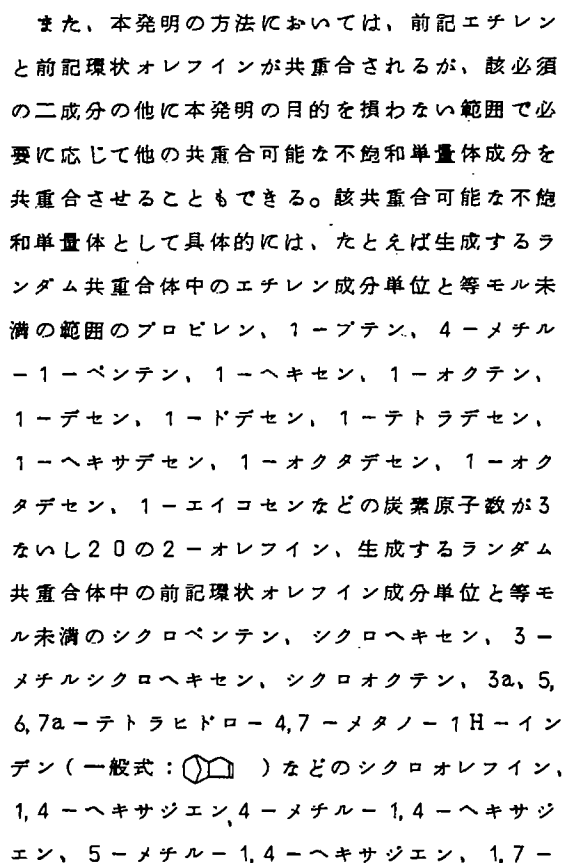 また、本発明の方法においては、前記エチレン
と前記環状オレフインが共重合されるが、該必須
の二成分の他に本発明の目的を損わない範囲で必
要に応じて他の共重合可能な不飽和単量体成分を
共重合させることもできる。該共重合可能な不飽
和単量体として具体的には、たとえば生成するラ
ンダム共重合体中のエチレン成分単位と等モル未
満の範囲のプロピレン、1－ブテン、4－メチル
－1－ペンテン、1－ヘキセン、1－オクテン、
1－デセン、1－ドデセン、1－テトラデセン、
1－ヘキサデセン、1－オクタデセン、1－オク
タデセン、1－エイコセンなどの炭素原子数が3
ないし20の2－オレフイン、生成するランダム
共重合体中の前記環状オレフイン成分単位と等モ
ル未満のシクロペンテン、シクロヘキセン、3－
メチルシクロヘキセン、シクロオクテン、3a、5,
6,7a－テトラヒドロ－4,7－メタノ－1H－イン
デン（一般式： ）などのシクロオレフイン、
1,4－ヘキサジエン、4－メチル－1,4－ヘキサジ
エン、5－メチル－1,4－ヘキサジエン、1,7－